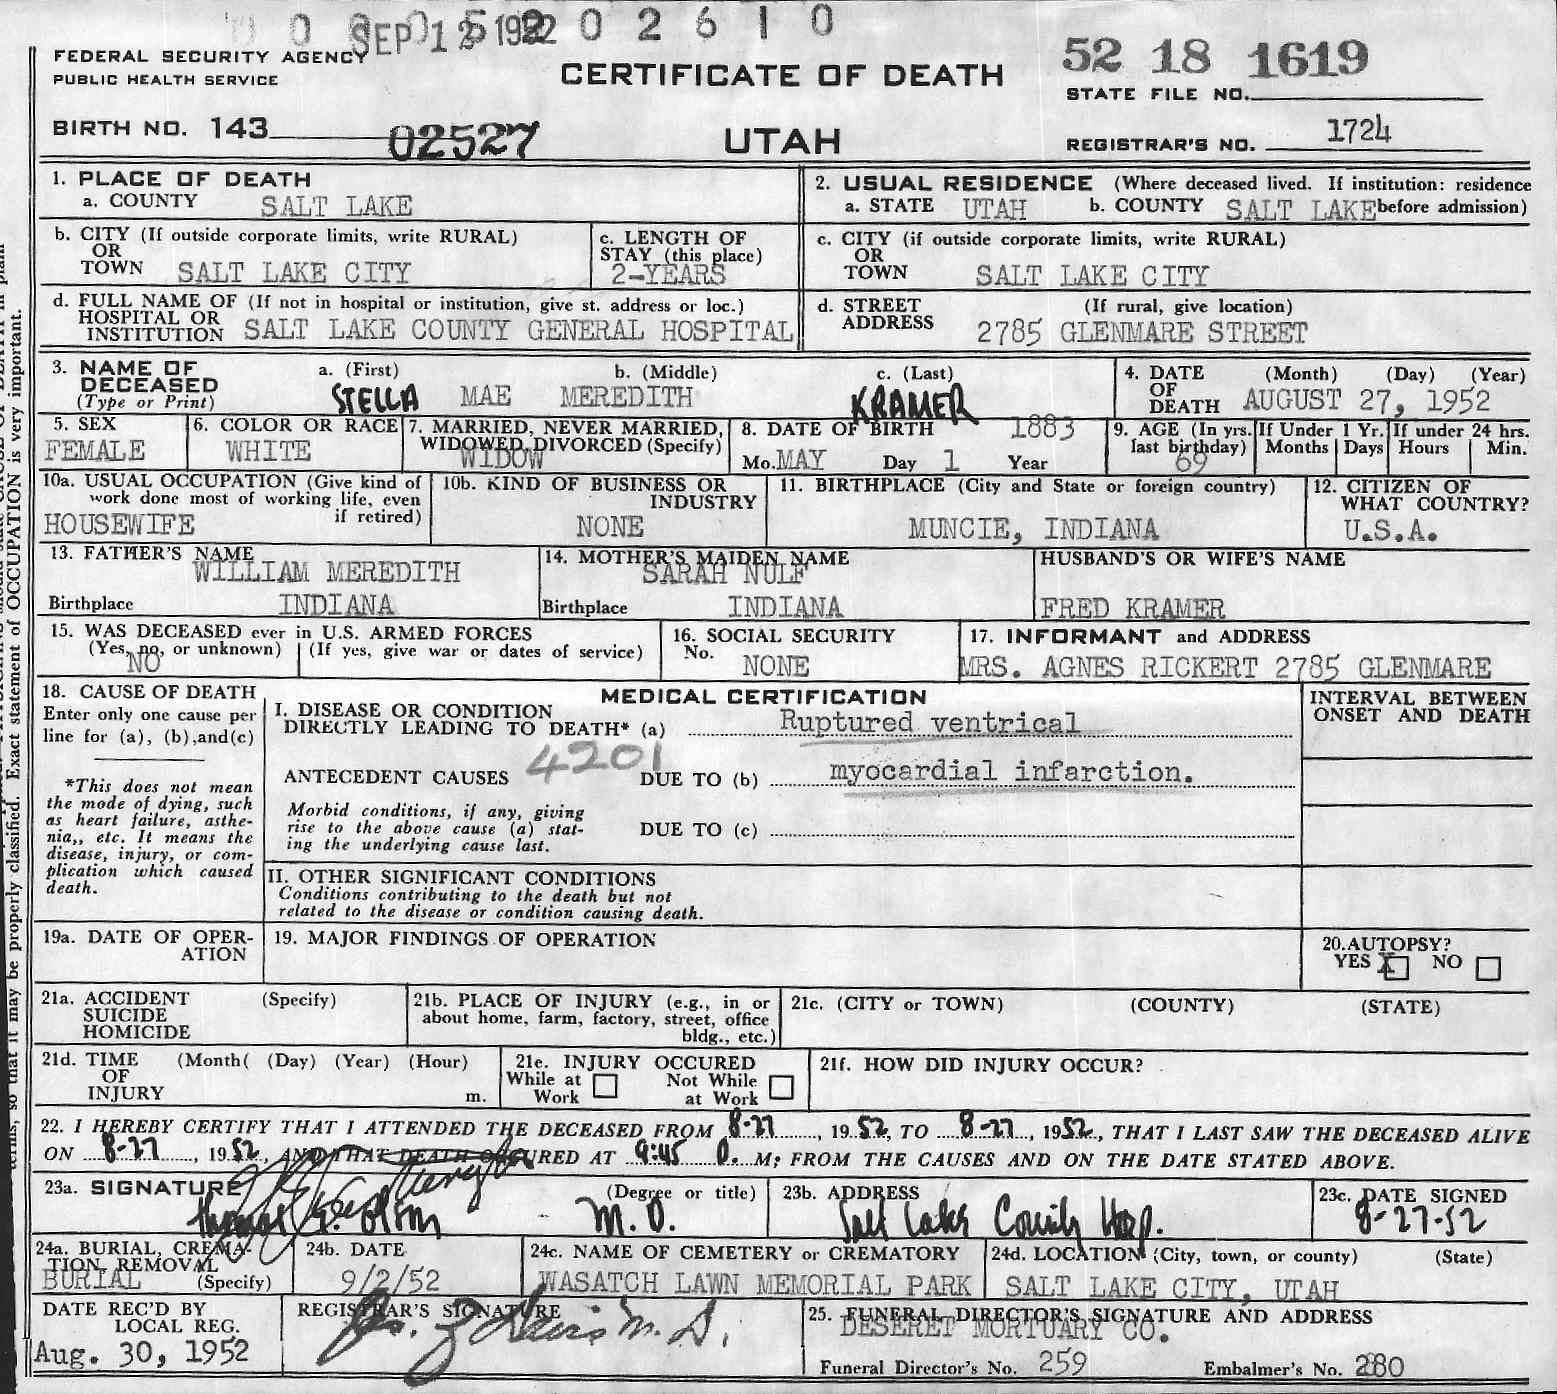 SEP 12 1952 0 2 6 1 0
FEDERAL SECURITY AGENCY
PUBLIC HEALTH SERVICE
CERTIFICATE OF DEATH
52 18 1619
STATE FILE NO.
BIRTH NO. 143 02527
UTAH
REGISTRAR'S NO. 1724
1. PLACE OF DEATH
a. COUNTY SALT LAKE
2. USUAL RESIDENCE (Where deceased lived. If institution: residence
a. STATE UTAH b. COUNTY SALT LAKE before admission)
b. CITY (If outside corporate limits, write RURAL)
OR
TOWN SALT LAKE CITY
c. LENGTH OF
STAY (this place)
2-YEARS
c. CITY (if outside corporate limits, write RURAL)
OR
TOWN SALT LAKE CITY
d. FULL NAME OF (If not in hospital or institution, give st. address or loc.)
HOSPITAL OR
INSTITUTION SALT LAKE COUNTY GENERAL HOSPITAL
d. STREET (If rural, give location)
ADDRESS 2785 GLENMARE STREET
3. NAME OF
DECEASED
(Type or Print)
a. (First) b. (Middle) c. (Last)
STELLA MAE MEREDITH KRAMER
4. DATE (Month) (Day) (Year)
OF
DEATH AUGUST 27, 1952
5. SEX
FEMALE
6. COLOR OR RACE
WHITE
7. MARRIED, NEVER MARRIED,
WIDOWED, DIVORCED (Specify)
WIDOW
8. DATE OF BIRTH 1883
Mo. MAY Day 1 Year
9. AGE (In yrs.
last birthday)
69
If Under 1 Yr.
Months Days
If under 24 hrs.
Hours Min.
10a. USUAL OCCUPATION (Give kind of
work done most of working life, even
if retired)
HOUSEWIFE
10b. KIND OF BUSINESS OR
INDUSTRY
NONE
11. BIRTHPLACE (City and State or foreign country)
MUNCIE, INDIANA
12. CITIZEN OF
WHAT COUNTRY?
U.S.A.
13. FATHER'S NAME
WILLIAM MEREDITH
Birthplace INDIANA
14. MOTHER'S MAIDEN NAME
SARAH NULF
Birthplace INDIANA
HUSBAND'S OR WIFE'S NAME
FRED KRAMER
15. WAS DECEASED ever in U.S. ARMED FORCES
(Yes, no, or unknown) (If yes, give war or dates of service)
NO
16. SOCIAL SECURITY
No. NONE
17. INFORMANT and ADDRESS
MRS. AGNES RICKERT 2785 GLENMARE
18. CAUSE OF DEATH
Enter only one cause per
line for (a), (b),and(c)
*This does not mean
the mode of dying, such
as heart failure, asthe-
nia,, etc. It means the
disease, injury, or com-
plication which caused
death.
MEDICAL CERTIFICATION
I. DISEASE OR CONDITION
DIRECTLY LEADING TO DEATH* (a) Ruptured ventrical
4201
ANTECEDENT CAUSES DUE TO (b) myocardial infarction.
Morbid conditions, if any, giving
rise to the above cause (a) stat-
ing the underlying cause last.
DUE TO (c)
II. OTHER SIGNIFICANT CONDITIONS
Conditions contributing to the death but not
related to the disease or condition causing death.
INTERVAL BETWEEN
ONSET AND DEATH
19a. DATE OF OPER-
ATION
19. MAJOR FINDINGS OF OPERATION
20.AUTOPSY?
YES X NO
21a. ACCIDENT (Specify)
SUICIDE
HOMICIDE
21b. PLACE OF INJURY (e.g., in or
about home, farm, factory, street, office
bldg., etc.)
21c. (CITY or TOWN) (COUNTY) (STATE)
21d. TIME (Month( (Day) (Year) (Hour)
OF
INJURY m.
21e. INJURY OCCURED
While at Not While
Work at Work
21f. HOW DID INJURY OCCUR?
22. I HEREBY CERTIFY THAT I ATTENDED THE DECEASED FROM 8-27, 1952, TO 8-27, 1952, THAT I LAST SAW THE DECEASED ALIVE
ON 8-27, 1952, AND THAT DEATH OCCURED AT 9:45 M; FROM THE CAUSES AND ON THE DATE STATED ABOVE.
23a. SIGNATURE (Degree or title)
Thomas Olson M.D.
23b. ADDRESS
Salt Lake County Hosp.
23c. DATE SIGNED
8-27-52
24a. BURIAL, CREMA-
TION, REMOVAL
BURIAL (Specify)
24b. DATE
9/2/52
24c. NAME OF CEMETERY or CREMATORY
WASATCH LAWN MEMORIAL PARK
24d. LOCATION (City, town, or county) (State)
SALT LAKE CITY, UTAH
DATE REC'D BY
LOCAL REG.
Aug. 30, 1952
REGISTRAR'S SIGNATURE
M.D.
25. FUNERAL DIRECTOR'S SIGNATURE AND ADDRESS
DESERET MORTUARY CO.
Funeral Director's No. 259 Embalmer's No. 280
terms, so that it may be properly classified. Exact statement of OCCUPATION is very important.